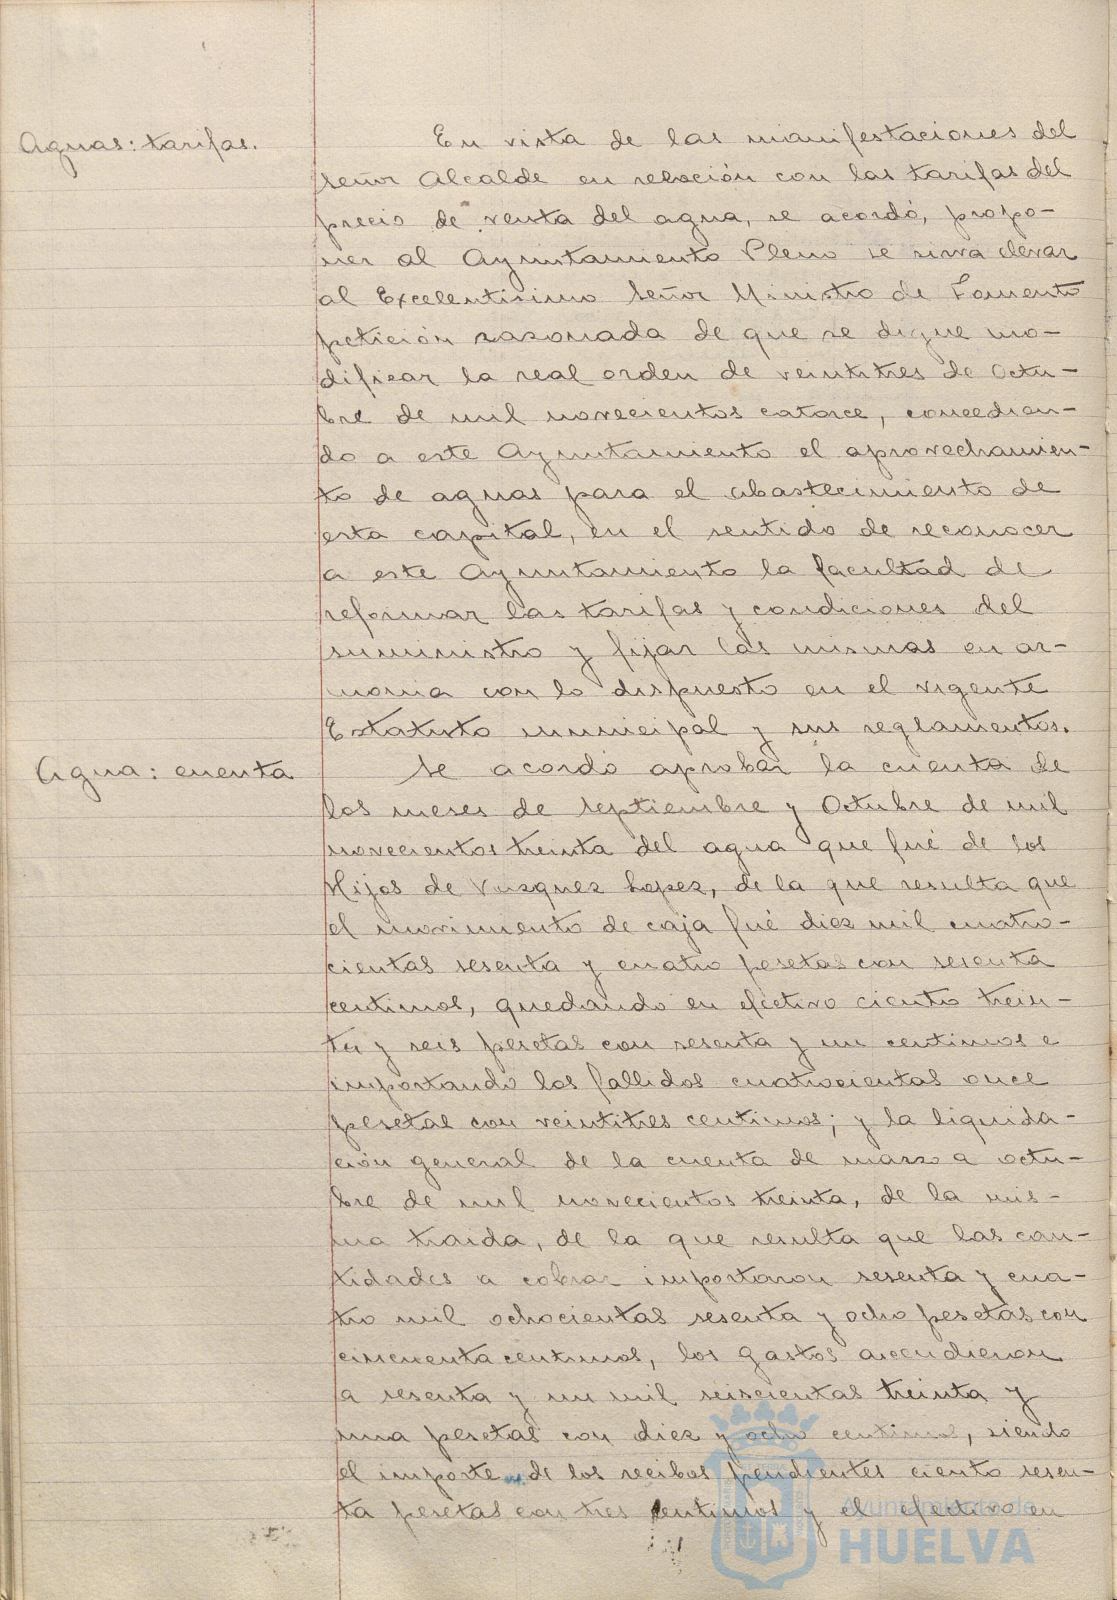 Aguas: tarifas.
En vista de las manifestaciones del
señor Alcalde en relación con las tarifas del
precio de venta del agua, se acordó, propo-
ner al Ayuntamiento Pleno se sirva elevar
al Excelentísimo Señor Ministro de Fomento
petición razonada de que se digne mo-
dificar la real orden de veintitres de Octu-
bre de mil novecientos catorce, concedien-
do a este Ayuntamiento el aprovechamien-
to de aguas para el abastecimiento de
esta capital, en el sentido de reconocer
a este Ayuntamiento la facultad de
reformar las tarifas y condiciones del
suministro y fijar las mismas en ar-
monia con lo dispuesto en el vigente
Estatuto municipal y sus reglamentos.
Agua: cuenta
Se acordó aprobar la cuenta de
los meses de septiembre y Octubre de mil
novecientos treinta del agua que fué de los
Hijos de Vazquez Lopez, de la que resulta que
el movimiento de caja fué diez mil cuatro-
cientas sesenta y cuatro pesetas con sesenta
centimos, quedando en efectivo ciento trein-
ta y seis pesetas con sesenta y un centimos e
importando los fallidos cuatrocientas once
pesetas con veintitres centimos; y la liquida-
ción general de la cuenta de marzo a octu-
bre de mil novecientos treinta, de la mis-
ma traida, de la que resulta que las can-
tidades a cobrar importaron sesenta y cua-
tro mil ochocientas sesenta y ocho pesetas con
cincuenta centimos, los gastos ascendieron
a sesenta y un mil seiscientas treinta y
una pesetas con diez y ocho centimos, siendo
el importe de los recibos pendientes ciento sesen-
ta pesetas con tres centimos y el efectivo en
Ayuntamiento de
HUELVA